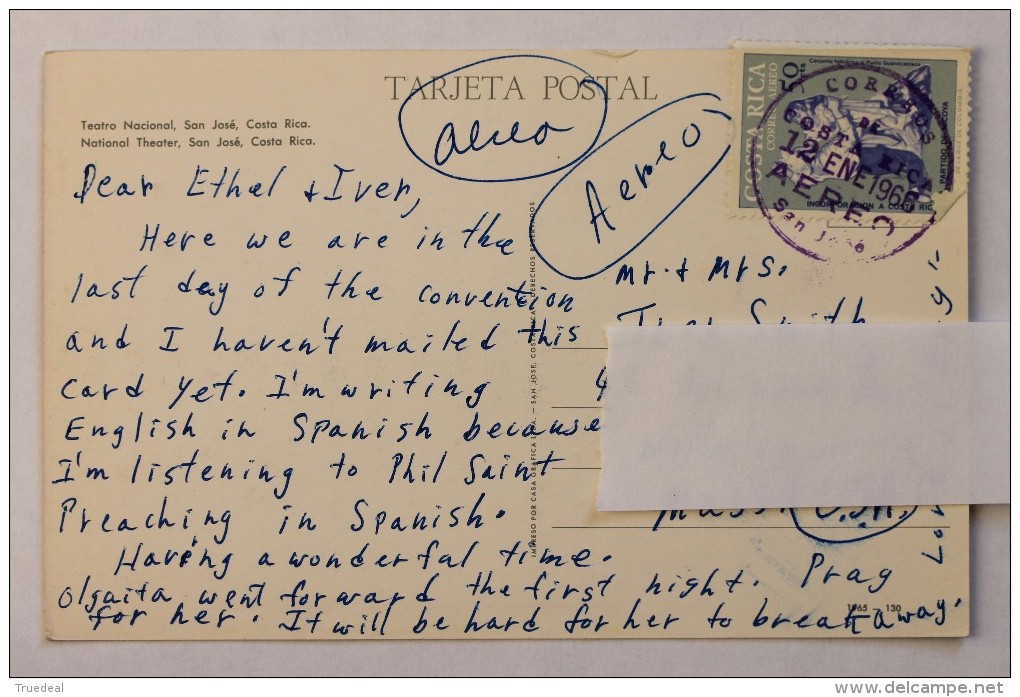 TARJETA POSTAL
Teatro Nacional, San José, Costa Rica.
National Theater, San José, Costa Rica.
aereo
Aereo
COSTA RICA
CORREO AEREO
50
INCORPORACION A COSTA RIC
PARTIDO DE NICOYA
CORREOS
DE
COSTA RICA
12 ENE 1966
AEREO
San José
Dear Ethel & Iver,
Here we are in the
last day of the convention
and I haven't mailed this
card yet. I'm writing
English in Spanish because
I'm listening to Phil Saint
Preaching in Spanish.
Having a wonderful time.
Olgaita went forward the first night. Prag
for her. It will be hard for her to break away.
Mr. & Mrs.
Iver Smith
Mass.
U.S.A.
IMPRESO POR CASA GRAFICA LTDA. — SAN JOSE, COSTA RICA, DERECHOS RESERVADOS
1965 - 130
Truedeal
delcampe.net